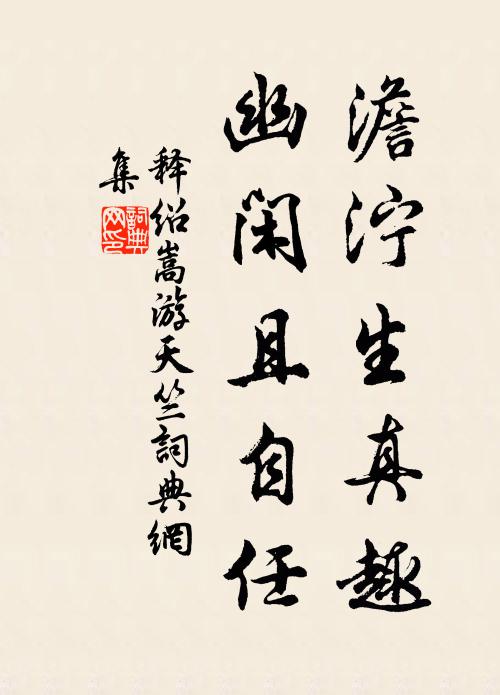 澹泞生真趣
幽闲且自任
释绍嵩游天竺詞典網
集
詞典
网印